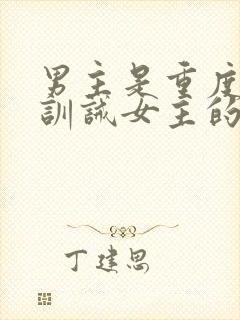 男主是重度
訓誡女主的
丁建思